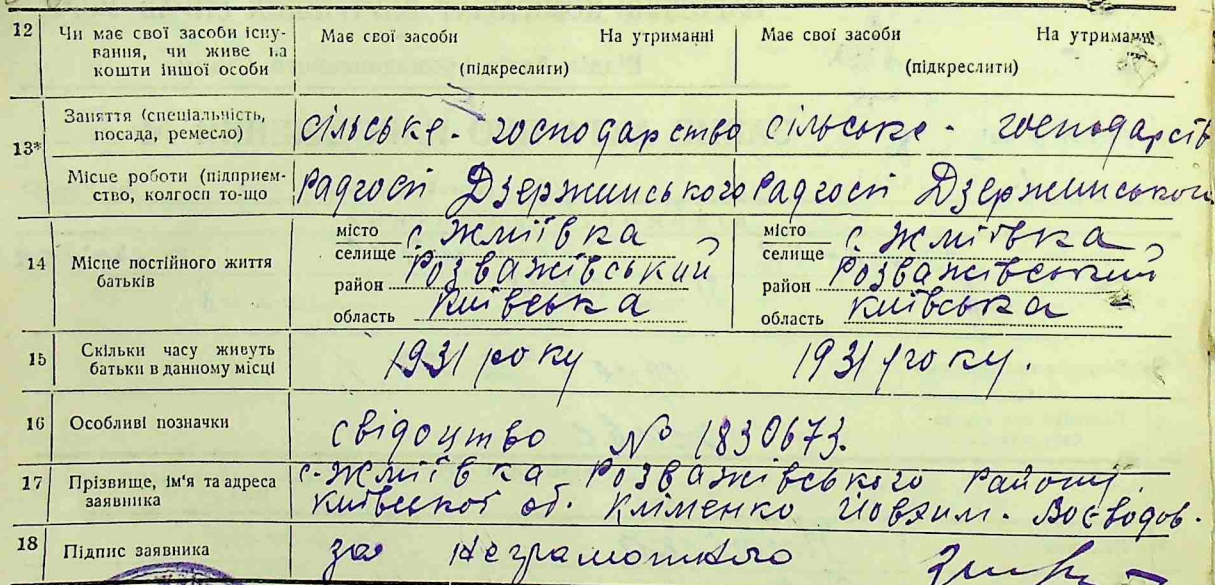 12 Чи має свої засоби існу-
вання, чи живе на
кошти іншої особи
Має свої засоби На утриманні
(підкреслити)
Має свої засоби На утриманні
(підкреслити)
13* Заняття (спеціальність,
посада, ремесло)
сільське-господарство
сільське-господарств
Місце роботи (підприєм-
ство, колгосп то-що
Радгосп Дзержинського
Радгосп Дзержинського
14 Місце постійного життя
батьків
місто
селище с. Жміївка
район Розважівський
область Київська
місто
селище с. Жміївка
район Розважівський
область Київська
15 Скільки часу живуть
батьки в данному місці
1931 року
1931 року.
16 Особливі позначки
свідоцтво № 1830673.
17 Прізвище, ім'я та адреса
заявника
с. Жміївка Розважівського району
Київської об. Кліменко Йовхим.
18 Підпис заявника
за неграмотного